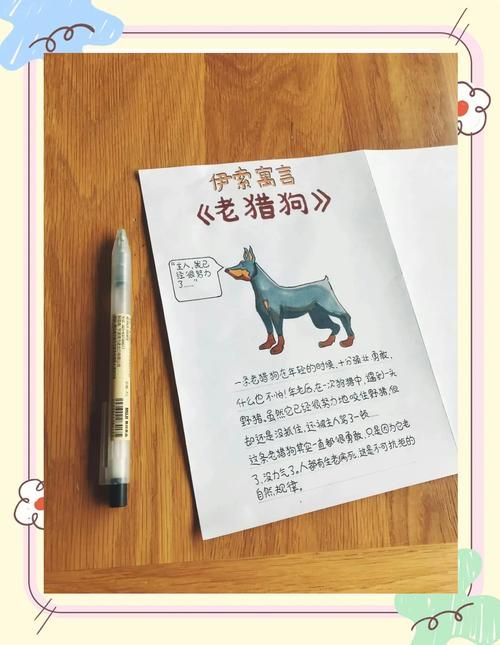 伊索寓言
《老猎狗》
“主人,我已
经很努力
了……”
一条老猎狗在年轻的时候,十分强壮、勇敢,
什么也不怕!年老后,在一次狩猎中,遇到一头
野猪。虽然它已经很努力地咬住野猪,但
却还是没抓住,还被主人骂了一顿。
这条老猎狗其实一直都很勇敢,只是因为它老
了,没力气了。人都有生老病死,这是不可抗拒的
自然规律。